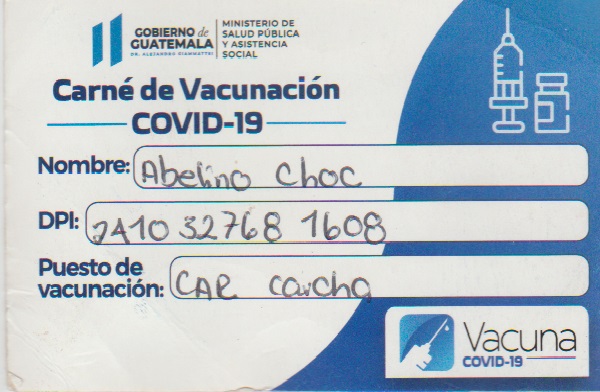 GOBIERNO de
GUATEMALA
DR. ALEJANDRO GIAMMATTEI
MINISTERIO DE
SALUD PÚBLICA
Y ASISTENCIA
SOCIAL
Carné de Vacunación
COVID-19
Nombre: Abelino Choc
DPI: 7410 32768 1608
Puesto de
vacunación: CAR carcha
Vacuna
COVID-19